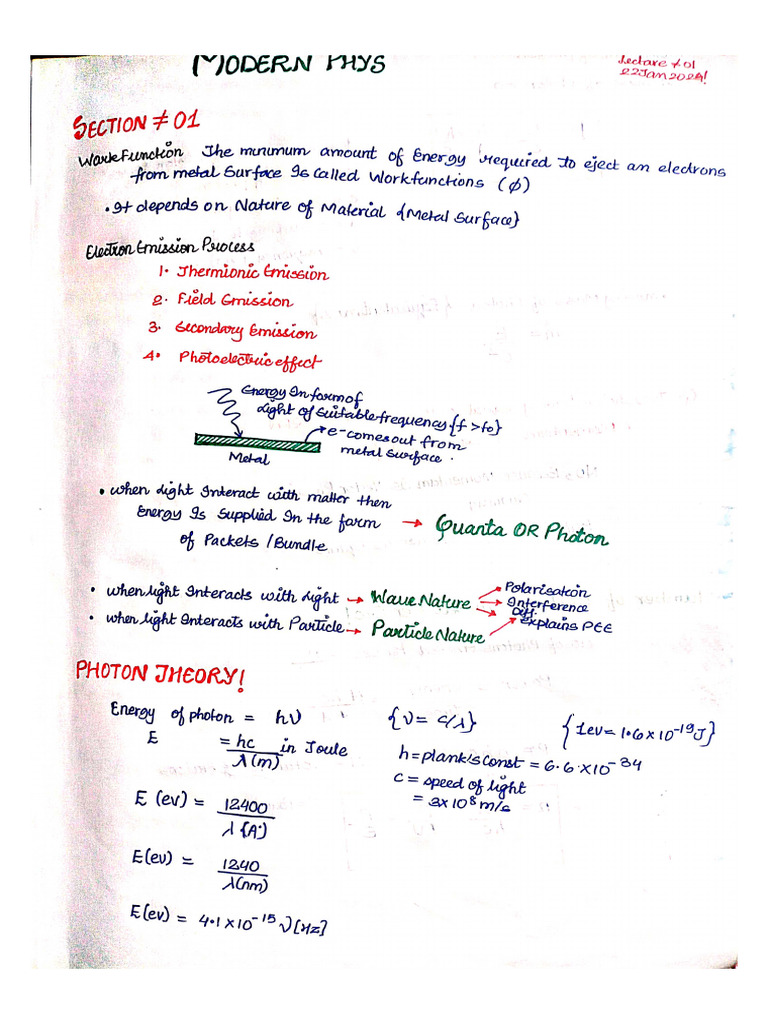 MODERN PHYS
Lecture # 01
22 Jan 2024!
SECTION # 01
Work Function The minimum amount of Energy required to eject an electrons
from metal Surface Is Called Workfunctions (ϕ)
• It depends on Nature of Material {Metal Surface}
Electron Emission Process
1. Thermionic Emission
2. Field Emission
3. Secondary Emission
4. Photoelectric effect
Energy In form of
Light of Suitable frequency {f > fo}
e- comes out from
metal surface.
Metal
• when Light Interact with matter then
Energy Is Supplied In the form → Quanta OR Photon
of Packets / Bundle
• when light Interacts with Light → Wave Nature → Polarisation
→ Interference
→ Diff.
• when light Interacts with Particle → Particle Nature → Explains PEE
PHOTON THEORY!
Energy of photon = hν {ν = c/λ} {1ev = 1.6 x 10^-19 J}
E = hc/λ(m) in Joule
h = plank's const = 6.6 x 10^-34
c = speed of light
= 3x10^8 m/s
E (ev) = 12400/λ{A°)
E(ev) = 1240/λ(nm)
E(ev) = 4.1x10^-15 ν[Hz]